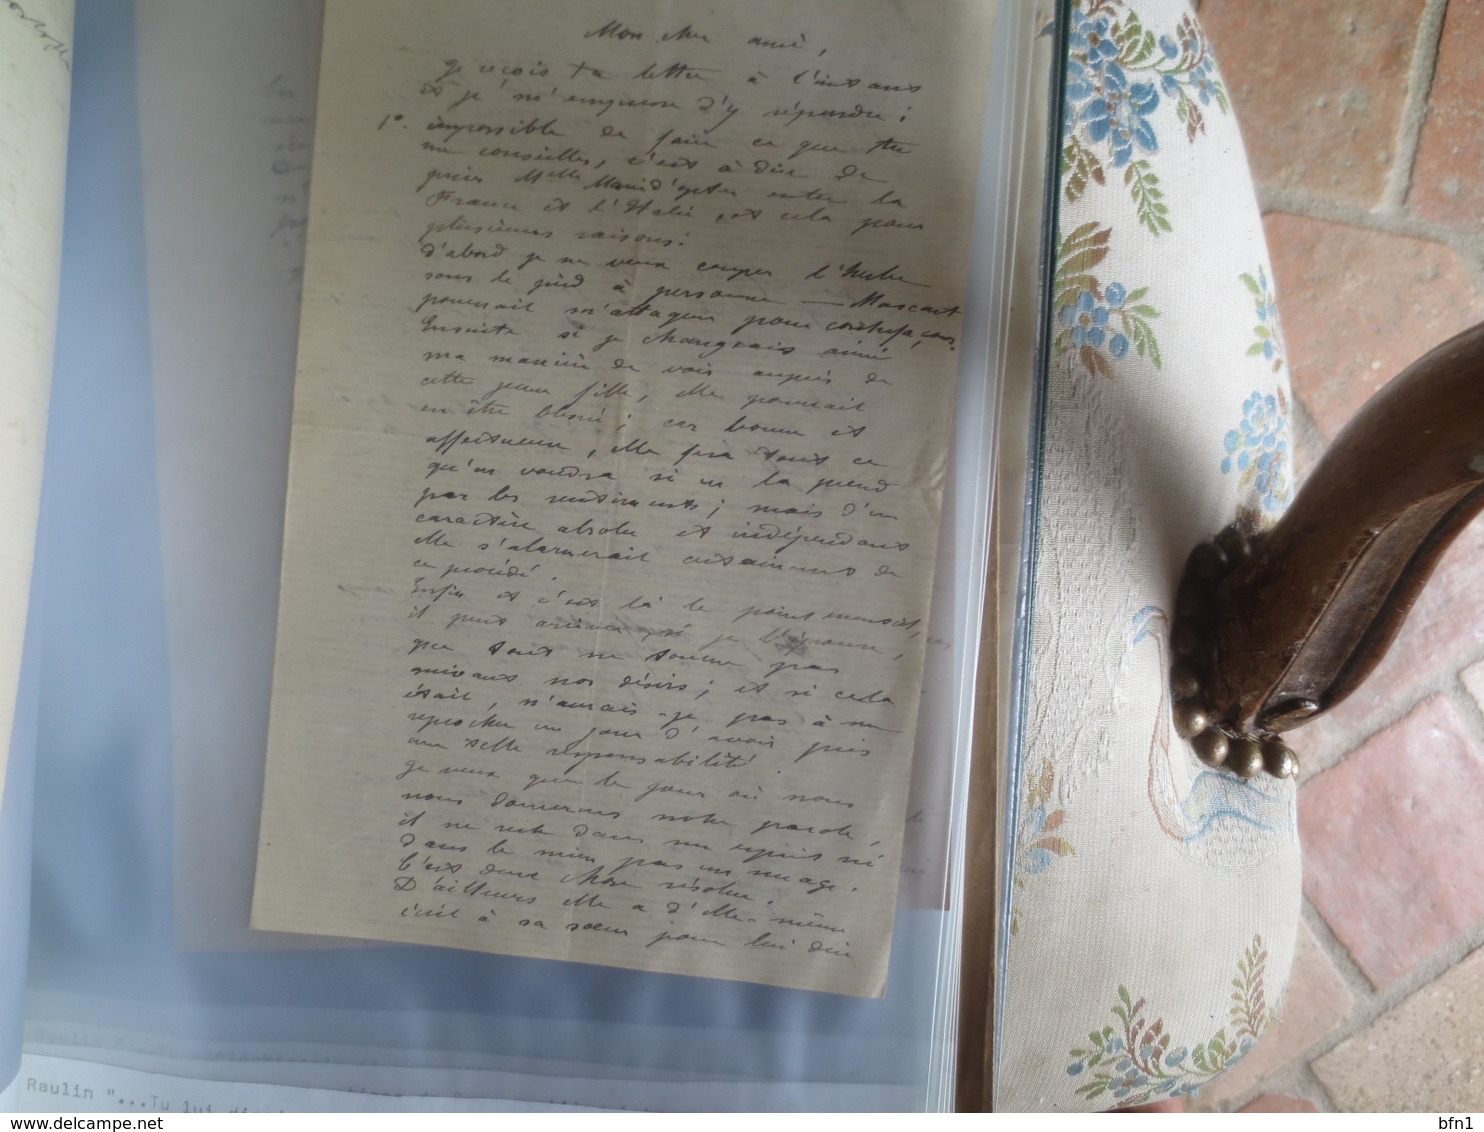 Mon cher ami,
je reçois ta lettre à l'instant
et je m'empresse d'y répondre :
1º. impossible de faire ce que tu
me conseilles, c'est à dire de
prier Melle Marie d'opter entre la
France et l'Italie, et cela pour
plusieurs raisons :
d'abord je ne veux couper l'herbe
sous le pied à personne — Mascart
pourrait m'attaquer pour contrefaçon.
Ensuite si je changeais ainsi
ma manière de voir auprès de
cette jeune fille, elle pourrait
en être blessée ; car bonne et
affectueuse, elle fera tout ce
qu'on voudra si on la prend
par les sentiments ; mais d'un
caractère absolu et indépendant
elle s'alarmerait certainement de
ce procédé.
Enfin et c'est là le point
il peut arriver, si je l'épouse,
que tout ne tourne pas
suivant nos désirs ; et si cela
était, n'aurais-je pas à me
reprocher un jour d'avoir pris
une telle responsabilité.
Je veux que le jour où nous
nous donnerons notre parole,
il ne reste dans son esprit ni
dans le mien pas un nuage.
C'est donc chose résolue.
D'ailleurs elle a d'elle-même
écrit à sa sœur pour lui dire
Raulin "...Tu lui
bfn1
delcampe.net